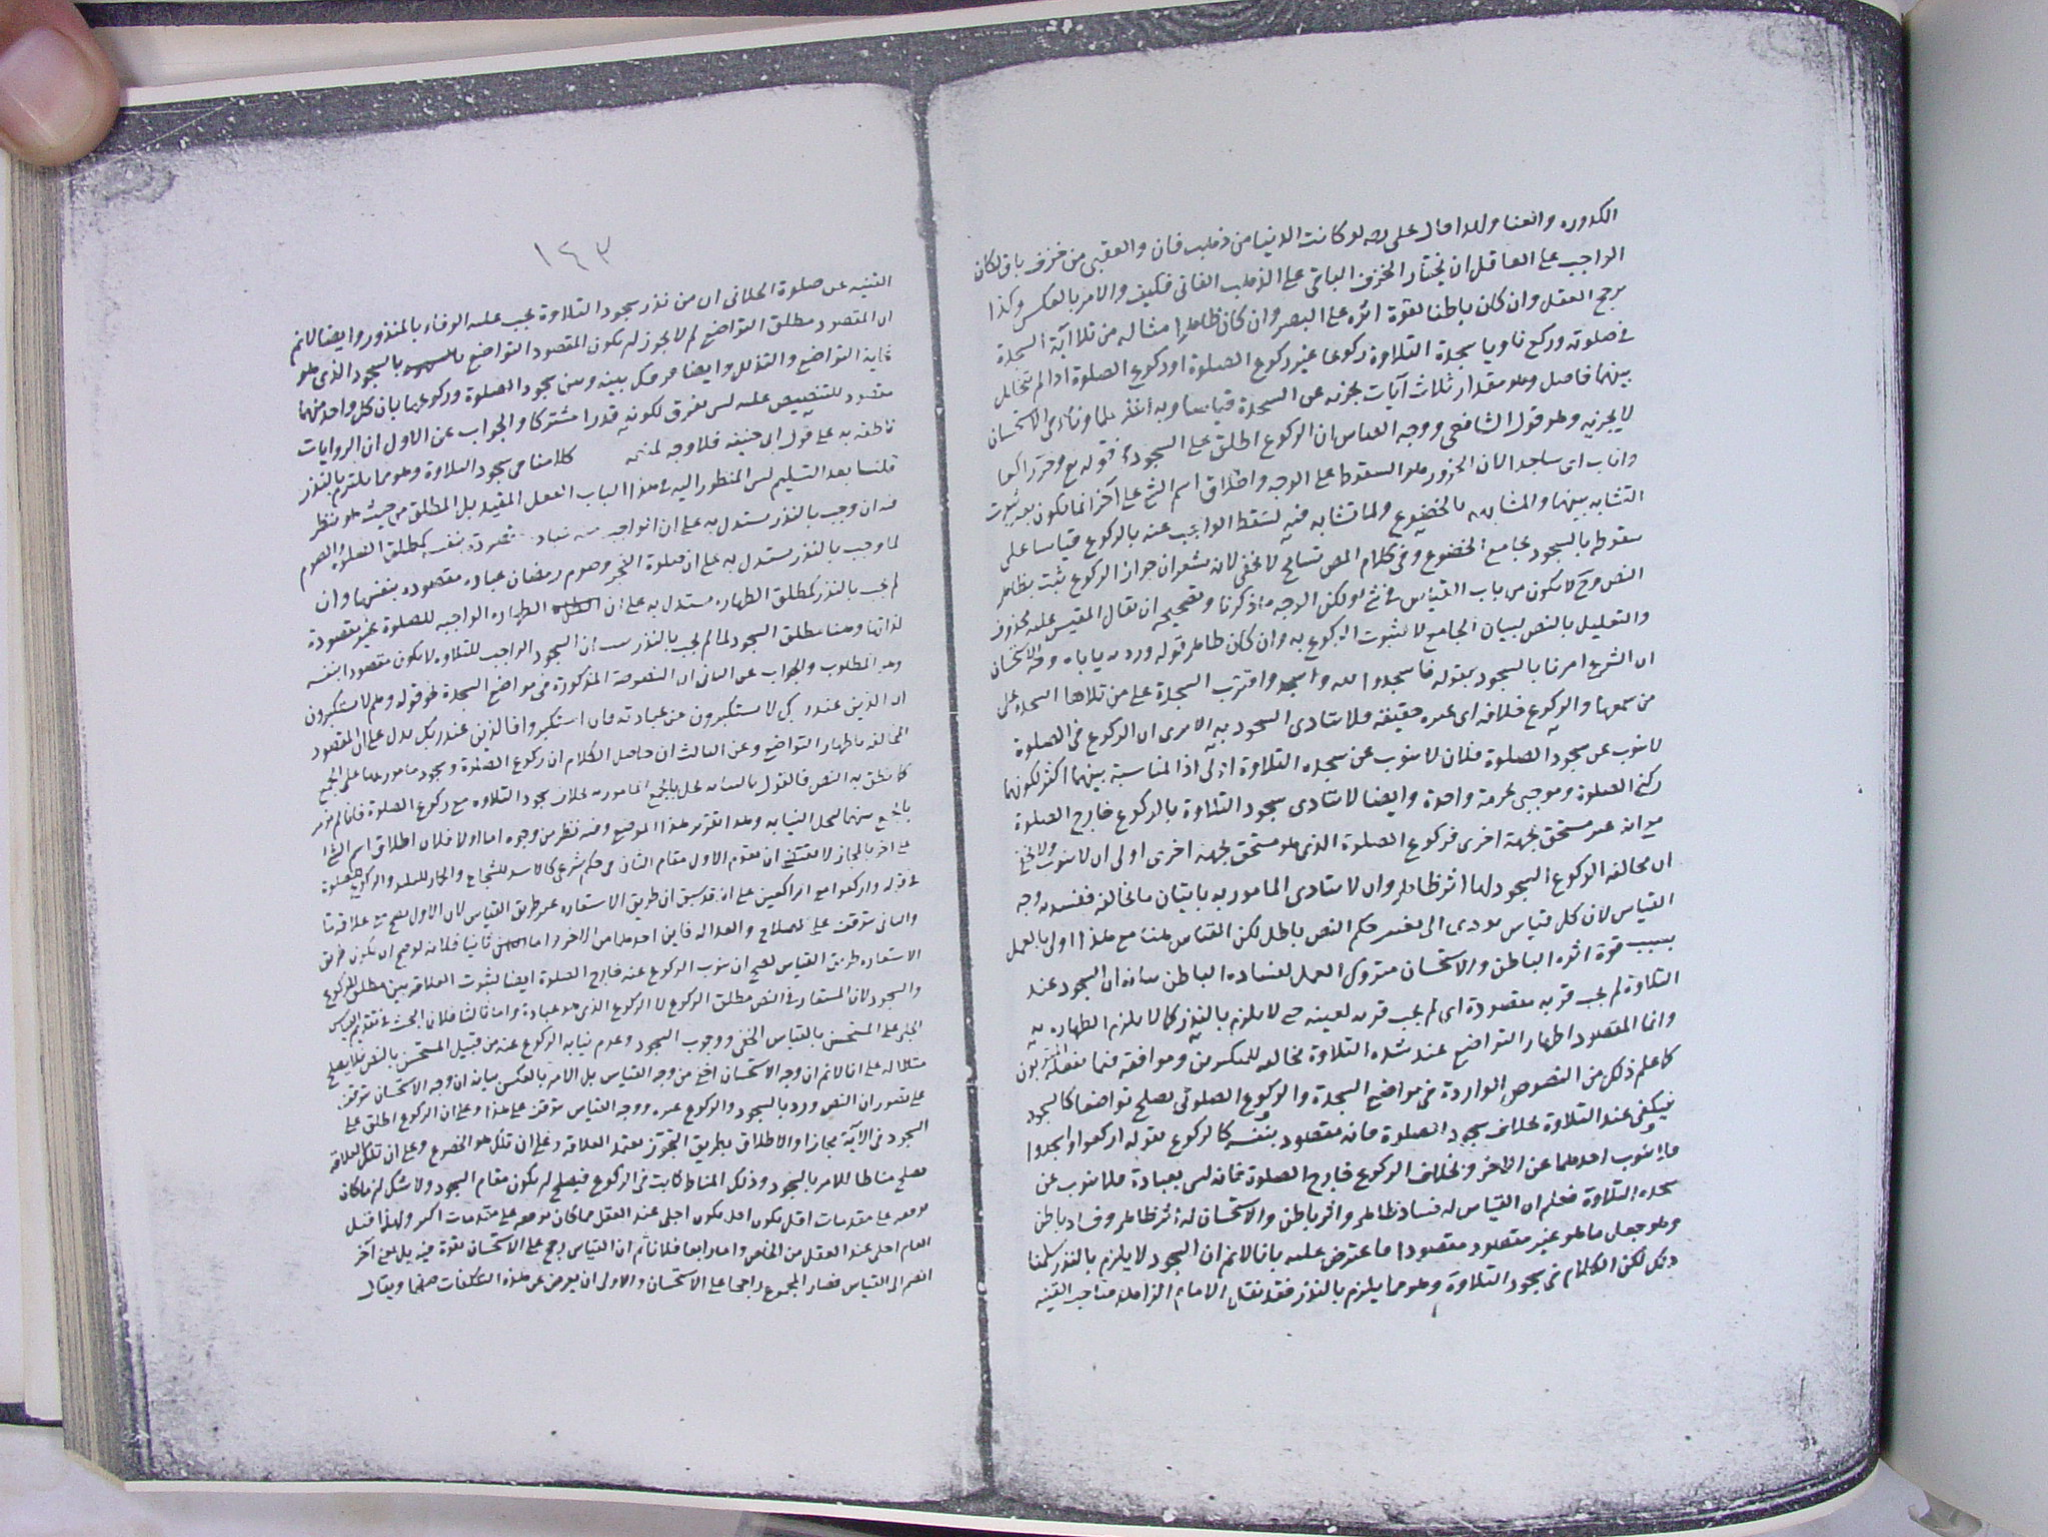 الكدوره والعنا ولهذا قال على رضه لو كانت الدنيا من ذهب فان والعقبى من خزف باق لكان
الواجب على العاقل ان يختار الخزف الباقى على الذهب الفانى فكيف والامر بالعكس وكذا
يرجح العقل وان كان باطنا لقوة اثره على البصر وان كان ظاهرا مثاله من تلا آية السجدة
فى صلوته وركع ناويا سجدة التلاوة ركوعا غير ركوع الصلوة او ركوع الصلوة اذا لم يتخلل
بينهما فاصل وهو مقدار ثلاث آيات يجزيه عن السجدة قياسا وبه اخذ علماؤنا وفى الاستحسان
لا يجزيه وهو قول الشافعى ووجه القياس ان الركوع اطلق على السجود فى قوله تع وخر راكعا
واناب اى ساجدا لان الخرور هو السقوط على الوجه واطلاق اسم الشئ على آخر انما يكون بعد ثبوت
التشابه بينهما والمشابهه بالخضوع ولما تشابه فيه لسقط الواجب عنه بالركوع قياسا على
سقوطه بالسجود بجامع الخضوع وفى كلام المص تسامح لا يخفى لانه يشعر ان جواز الركوع ثبت بظاهر
النص وح لا يكون من باب القياس فى شئ ولكن الوجه ما ذكرنا وتصحيحه ان يقال المقيس عليه محذوف
والتعليل بالنص لبيان الجامع لا لثبوت الركوع به وان كان ظاهر قوله ورد به ياباه وجه الاستحسان
ان الشرع امرنا بالسجود بقوله فاسجدوا لله واسجد واقترب السجدة على من تلاها السجدة على
من سمعها والركوع خلافه اى غيره حقيقه فلا يتادى السجود به الا يرى ان الركوع فى الصلوة
لا ينوب عن سجود الصلوة فلان لا ينوب عن سجده التلاوة اولى اذ المناسبة بينهما اكثر لكونهما
ركنى الصلوة وموجبى تحرمة واحدة وايضا لا يتادى سجود التلاوة بالركوع خارج الصلوة
مع انه غير مستحق بجهة اخرى فركوع الصلوة الذى هو مستحق بجهة اخرى اولى ان لا ينوب ولا يخفى
ان مخالفه الركوع السجود لها اثر ظاهر وان لا يتادى المامور به باتيان ما يخالفه ففسد به وجه
القياس لان كل قياس يودى الى تغيير حكم النص باطل لكن القياس هنا مع هذا اولى بالعمل
بسبب قوة اثره الباطن والاستحسان متروك العمل لفساده الباطن بيانه ان السجود عند
التلاوة لم يجب قربه مقصودة اى لم يجب قربه لعينه حتى لا يلزم بالنذر كما لا يلزم الطهاره به
وانما المقصود اظهار التواضع عند هذه التلاوة مخالفه للمتكبرين وموافقه فيما يفعله المقربون
كما علم ذلك من النصوص الواردة فى مواضع السجدة والركوع الصلوتى يصلح تواضعا كالسجود
فيكفى عند التلاوة بخلاف سجود الصلوة فانه مقصود بنفسه كالركوع بقوله اركعوا واسجدوا
فلا ينوب احدهما عن الاخر وبخلاف الركوع خارج الصلوة فانه ليس بعبادة فلا ينوب عن
سجده التلاوة فعلم ان القياس له فساد ظاهر واثر باطن والاستحسان له اثر ظاهر وفساد باطن
وهو جعل ما هو غير مقصود مقصودا ما عترض عليه بانا لا نم ان السجود لا يلزم بالنذر سلمنا
ذلك لكن الكلام فى سجود التلاوة وهو مما يلزم بالنذر فقد نقل الامام الزاهد صاحب القنيه
١٤٣
القنيه عن صلوة الجلابى ان من نذر سجود التلاوة يجب عليه الوفاء بالمنذور وايضا لا نم
ان المقصود مطلق التواضع لم لا يجوز ان يكون المقصود التواضع بالسجود الذى هو
غاية التواضع والتذلل وايضا فرقك بينه وبين سجود الصلوة وركوعها بان كل واحد منهما
مقصود للتنصيص عليه ليس بفرق لكونه قدرا مشتركا والجواب عن الاول ان الروايات
ناطقه به على قول ابى حنيفه فلا وجه لمنعه كلامنا فى سجود التلاوة وهو مما يلتزم بالنذر
قلنا بعد التسليم ليس المنظور اليه فى هذا الباب الفعل المقيد بل المطلق من حيث هو ينظر
فيه ان وجب بالنذر يستدل به على ان الواجب منه عبادة مقصودة بنفسه كمطلق الصلوة والصوم
لما وجب بالنذر يستدل به على ان صلوة الفجر وصوم رمضان عباده مقصوده بنفسها وان
لم يجب بالنذر كمطلق الطهاره يستدل به على ان الطهاره الواجبه للصلوة غير مقصودة
لذاتها وهنا مطلق السجود لما لم يجب بالنذر ثبت ان السجود الواجب للتلاوه لا يكون مقصودا بنفسه
وهو المطلوب والجواب عن الثانى ان النصوص المذكورة فى مواضع السجدة نحو قوله وهم لا يستكبرون
ان الذين عند ربك لا يستكبرون عن عبادته فان استكبروا فالذين عند ربك يدل على ان المقصود
المخالفه باظهار التواضع وعن الثالث ان حاصل الكلام ان ركوع الصلوة وسجود مامور بهما على الجمع
كما نطق به النص فالقول بالنيابه يخل بالجمع المامور به بخلاف سجود التلاوه مع ركوع الصلوة فانا لم نؤمر
بالجمع بينهما لتخل النيابه وهذا تقرير هذا الموضع وفيه نظر من وجوه اما اولا فلان اطلاق اسم الشئ
على آخر بالمجاز لا يقتضى ان يقوم الاول مقام الثانى فى حكم شرعى كالاسد للشجاع والحمار للبليد والركوع للصلوة
فى قوله واركعوا مع الراكعين على انه قد سبق ان طريق الاستعاره غير طريق القياس لان الاول يصح مع علاقه ما
والثانى يتوقف على الصلاح والعداله فاين احدهما من الاخر واما ثانيا فلانه لو صح ان يكون طريق
الاستعاره طريق القياس لصح ان ينوب الركوع عنه خارج الصلوة ايضا لثبوت العلاقه بين مطلق الركوع
والسجود لان المستعار فى النص مطلق الركوع لا الركوع الذى هو عبادة واما ثالثا فلان البحث فى تقديم القياس
الجلى على المستحسن بالقياس الخفى ووجوب السجود وعدم نيابه الركوع عنه من قبيل المستحسن بالنص فلا يصلح
مثالا له على انا لا نم ان وجه الاستحسان اخفى من وجه القياس بل الامر بالعكس بيانه ان وجه الاستحسان يتوقف
على تصور ان النص ورد بالسجود والركوع غيره ووجه القياس يتوقف على هذا وعلى ان الركوع اطلق على
السجود فى الآية مجازا والاطلاق بطريق التجوز يعتمد العلاقه وعلى ان تلك هو الخضوع وعلى ان تلك العلاقه
تصلح مناطا للامر بالسجود وذلك المناط ثابت فى الركوع فيصلح ان يكون مقام السجود ولا شك ان ما كان
توقفه على مقدمات اقل يكون اجلى عند العقل مما كان توقفه على مقدمات اكثر ولهذا قيل
العام اجلى عند العقل من الخاص واما رابعا فلانا نم ان القياس يرجح على الاستحسان بقوة فيه بل بمعنى آخر
انضم الى القياس فصار المجموع راجحا على الاستحسان والاولى ان يعرض عن هذه التكلفات صفحا ويقال